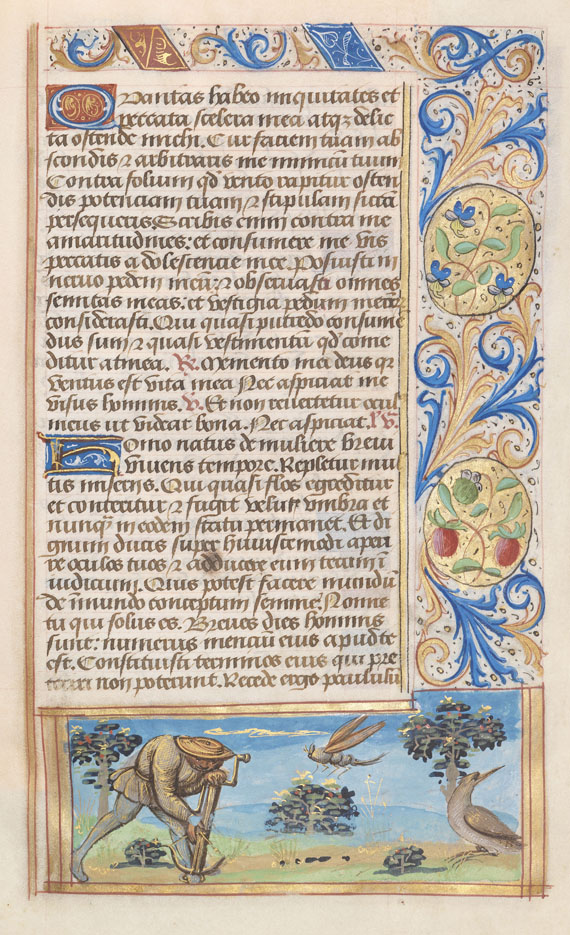 Quantas habeo iniquitates et
peccata scelera mea atqz delic
ta ostende michi. Cur faciem tuam ab
scondis ⁊ arbitraris me inimicū tuum
Contra folium qd̄ vento rapitur osten
dis potenciam tuam ⁊ stipulam siccā
persequeris. Scribis enim contra me
amaritudines: et consumere me vis
peccatis adolescentie mee. Posuisti in
nervo pedem meū: ⁊ observasti omnes
semitas meas: et vestigia pedum meor̄
considerasti. Qui quasi putredo consume
dus sum ⁊ quasi vestimentū qd̄ come
ditur a tinea. R. Memento mei deus qr
ventus est vita mea Nec aspiciat me
visus hominis. V. Et non revertetur ocul
meus ut videat bona. Nec aspiciat.
Homo natus de muliere brevi
vivens tempore. Repletur mul
tis miseriis. Qui quasi flos egreditur
et conteritur ⁊ fugit velut umbra et
nunqz̄ in eodem statu permanet. Et di
gnum ducis super huiuscemodi aperi
re oculos tuos ⁊ adducere eum tecum ī
iudicium. Quis potest facere mundū
de īmundo conceptum semine. Nonne
tu qui solus es. Breves dies hominis
sunt: numerus mensiū eius apud te
est. Constituisti terminos eius qui pre
teriri non poterunt. Recede ergo paululū